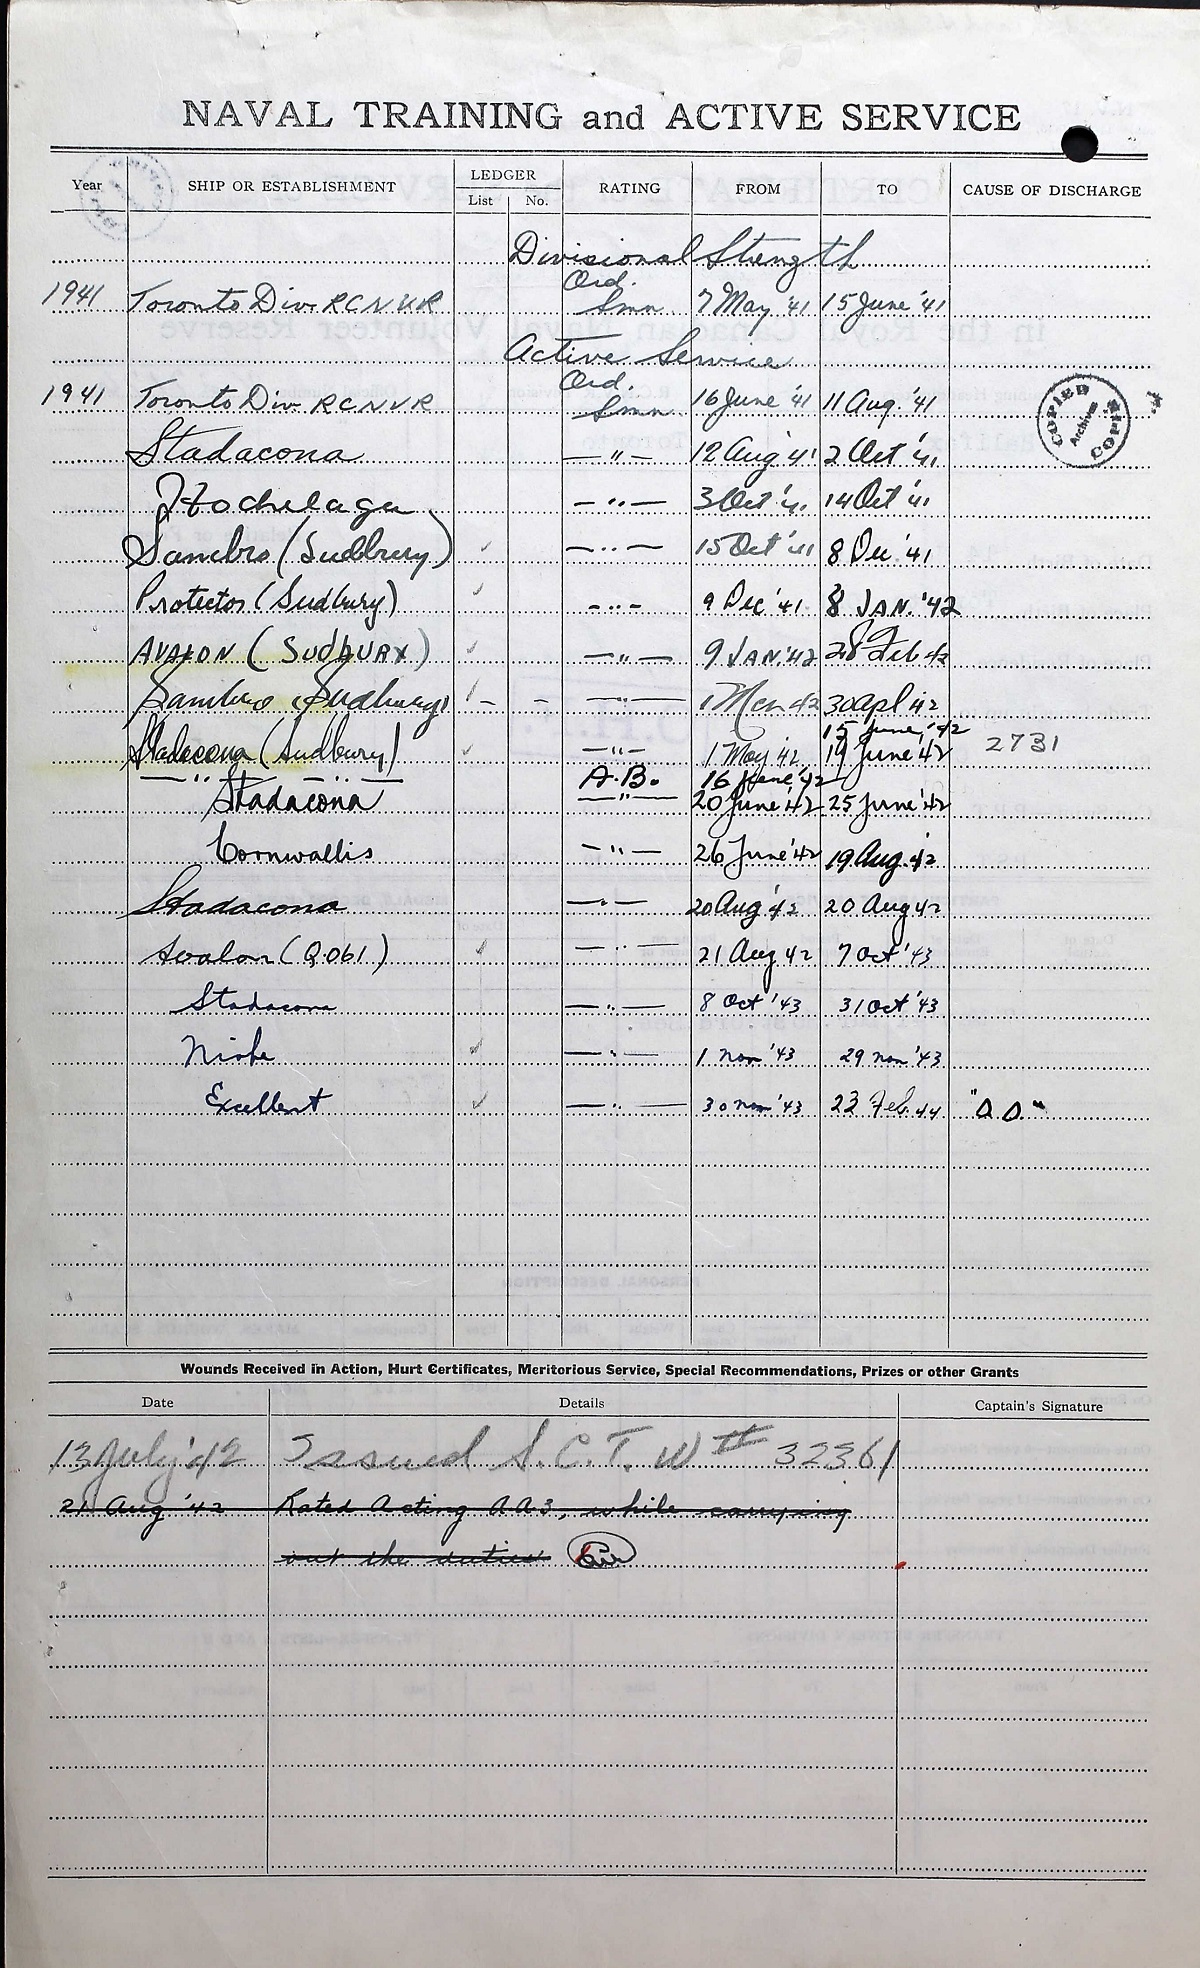 NAVAL TRAINING and ACTIVE SERVICE
Year SHIP OR ESTABLISHMENT LEDGER List No. RATING FROM TO CAUSE OF DISCHARGE
Divisional Strength
1941 Toronto Div. RCNVR Ord. Smn 7 May '41 15 June '41
Active Service
1941 Toronto Div. RCNVR Ord. Smn 16 June '41 11 Aug. '41
COPIED Archives COPIÉ
Stadacona — " — 12 Aug 41 2 Oct '41
Hochelaga — " — 3 Oct '41 14 Oct '41
Sambro (Sudbury) ✓ — " — 15 Oct '41 8 Dec. '41
Protector (Sudbury) ✓ — " — 9 Dec '41 8 JAN. '42
AVALON (SUDBURY) ✓ — " — 9 JAN '42 28 Feb 42
Sambro (Sudbury) ✓ — — — " — 1 Mch 42 30 Apl 42
15 June, '42
Stadacona (Sudbury) ✓ — " — 1 May '42 19 June '42 2731
— " — — " — A.B. 16 June '42
Stadacona — " — 20 June '42 25 June '42
Cornwallis — " — 26 June '42 19 Aug. '42
Stadacona — " — 20 Aug '42 20 Aug 42
Avalon (Q061) ✓ — " — 21 Aug 42 7 Oct '43
Stadacona — " — 8 Oct '43 31 Oct '43
Niobe ✓ — " — 1 Nov '43 29 Nov '43
Excellent ✓ — " — 30 Nov '43 23 Feb. 44 "D.D."
Wounds Received in Action, Hurt Certificates, Meritorious Service, Special Recommendations, Prizes or other Grants
Date Details Captain's Signature
13 July '42 Issued S.C.T. W# 32361
21 Aug '42 Rated Acting AA3, while carrying
out the duties